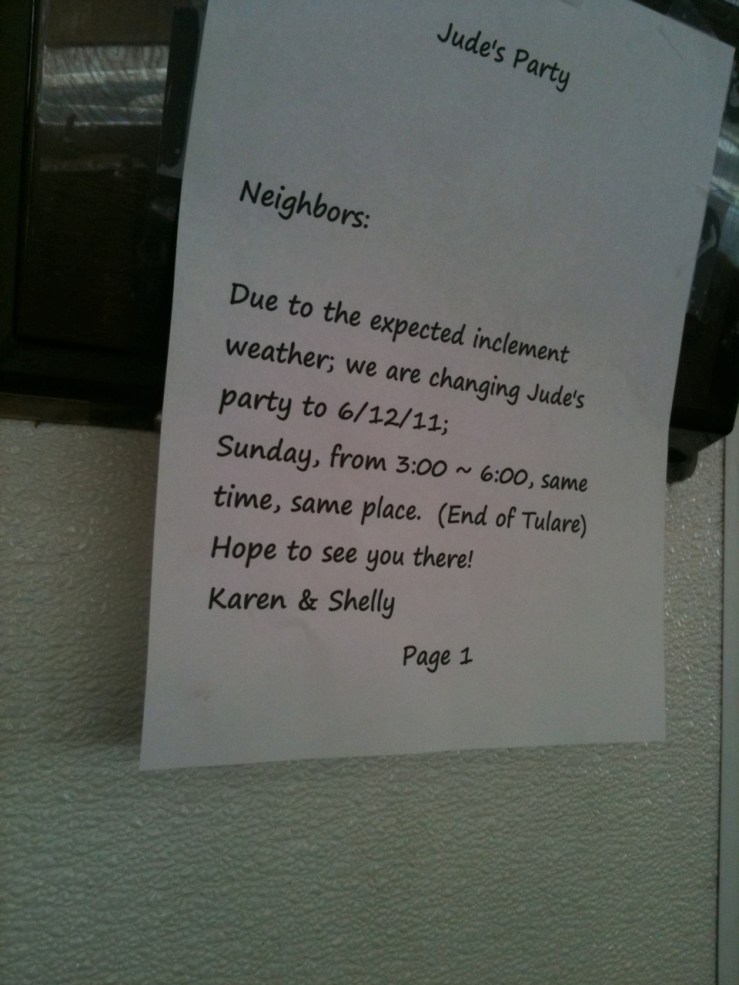 Jude's Party
Neighbors:
Due to the expected inclement
weather; we are changing Jude's
party to 6/12/11;
Sunday, from 3:00 ~ 6:00, same
time, same place. (End of Tulare)
Hope to see you there!
Karen & Shelly
Page 1